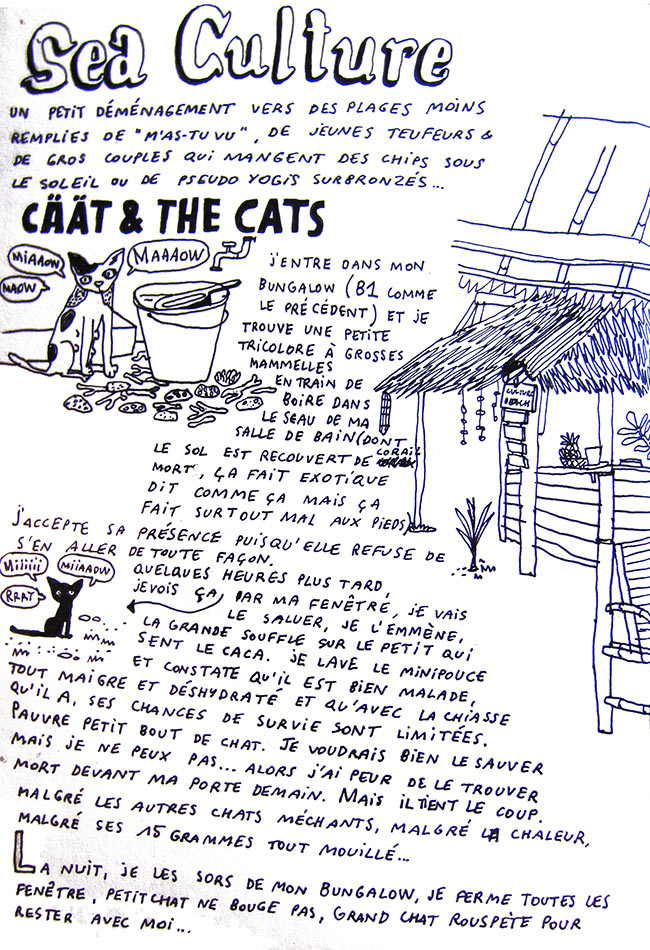 Sea Culture
UN PETIT DÉMÉNAGEMENT VERS DES PLAGES MOINS
REMPLIES DE "M'AS-TU VU", DE JEUNES TEUFEURS &
DE GROS COUPLES QUI MANGENT DES CHIPS SOUS
LE SOLEIL OU DE PSEUDO YOGIS SURBRONZÉS...
CÄÄT & THE CATS
MIAAOW
MAOW
MAAAOW
J'ENTRE DANS MON
BUNGALOW (B1 COMME
LE PRÉCÉDENT) ET JE
TROUVE UNE PETITE
TRICOLORE À GROSSES
MAMMELLES
EN TRAIN DE
BOIRE DANS
LE SEAU DE MA
SALLE DE BAIN (DONT
LE SOL EST RECOUVERT DE CORAIL
MORT, ÇA FAIT EXOTIQUE
DIT COMME ÇA MAIS ÇA
FAIT SURTOUT MAL AUX PIEDS)
CULTURE
BEACH
J'ACCEPTE SA PRÉSENCE PUISQU'ELLE REFUSE DE
S'EN ALLER DE TOUTE FAÇON.
MIIIIII
MIIAAOW
RRAT
QUELQUES HEURES PLUS TARD,
JE VOIS ÇA, PAR MA FENÊTRE, JE VAIS
LE SALUER, JE L'EMMÈNE,
LA GRANDE SOUFFLE SUR LE PETIT QUI
SENT LE CACA. JE LAVE LE MINIPOUCE
ET CONSTATE QU'IL EST BIEN MALADE,
TOUT MAIGRE ET DÉSHYDRATÉ ET QU'AVEC LA CHIASSE
QU'IL A, SES CHANCES DE SURVIE SONT LIMITÉES.
PAUVRE PETIT BOUT DE CHAT. JE VOUDRAIS BIEN LE SAUVER
MAIS JE NE PEUX PAS... ALORS J'AI PEUR DE LE TROUVER
MORT DEVANT MA PORTE DEMAIN. MAIS IL TIENT LE COUP.
MALGRÉ LES AUTRES CHATS MÉCHANTS, MALGRÉ LA CHALEUR,
MALGRÉ SES 15 GRAMMES TOUT MOUILLÉ...
LA NUIT, JE LES SORS DE MON BUNGALOW, JE FERME TOUTES LES
FENÊTRE, PETIT CHAT NE BOUGE PAS, GRAND CHAT ROUSPÈTE POUR
RESTER AVEC MOI...